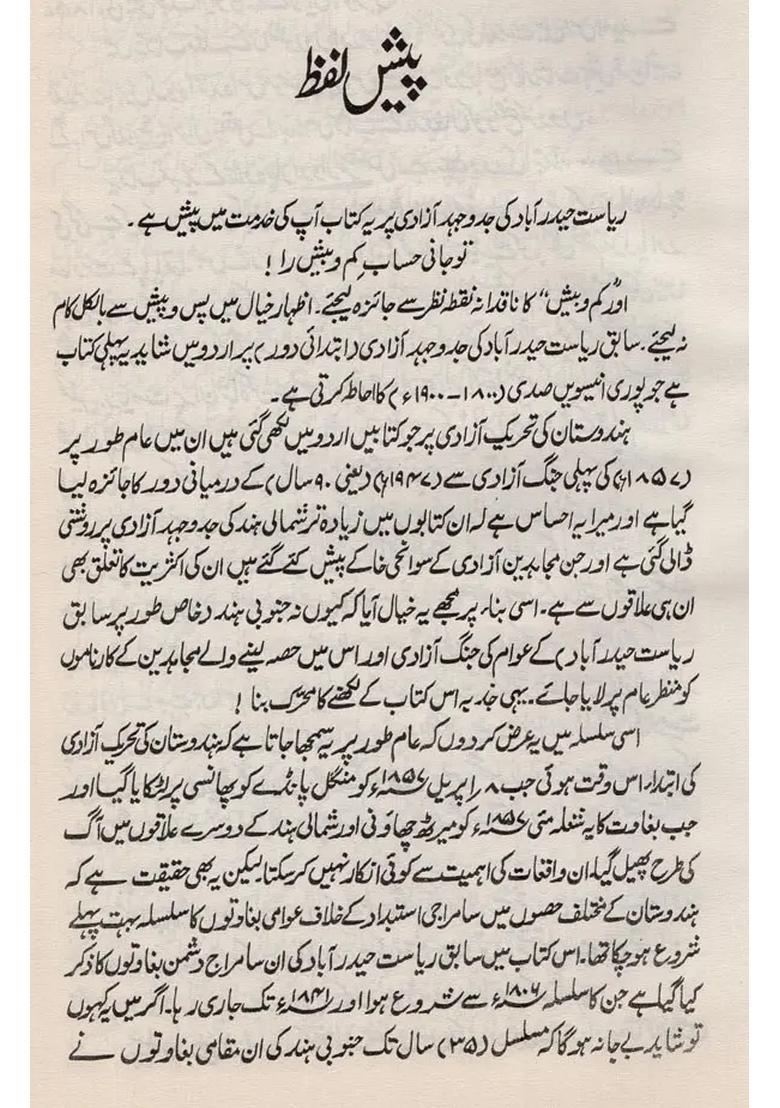 پیش لفظ
ریاست حیدرآباد کی جدوجہد آزادی پر یہ کتاب آپ کی خدمت میں پیش ہے۔
تو جانی حساب کم و بیش را!
اور "کم و بیش" کا ناقدانہ نقطہ نظر سے جائزہ لیجئے۔ اظہار خیال میں پس و پیش سے بالکل کام
نہ لیجئے۔ سابق ریاست حیدرآباد کی جدوجہد آزادی (ابتدائی دور) پر اردو میں شاید یہ پہلی کتاب
ہے جو پوری انیسویں صدی (۱۸۰۰–۱۹۰۰ء) کا احاطہ کرتی ہے۔
ہندوستان کی تحریک آزادی پر جو کتابیں اردو میں لکھی گئی ہیں ان میں عام طور پر
(۱۸۵۷ء) کی پہلی جنگ آزادی سے (۱۹۴۷ء) (یعنی ۹۰ سال) کے درمیانی دور کا جائزہ لیا
گیا ہے اور میرا یہ احساس ہے کہ ان کتابوں میں زیادہ تر شمالی ہند کی جدوجہد آزادی پر روشنی
ڈالی گئی ہے اور جن مجاہدین آزادی کے سوانحی خاکے پیش کئے گئے ہیں ان کی اکثریت کا تعلق بھی
ان ہی علاقوں سے ہے۔ اسی بناء پر مجھے یہ خیال آیا کہ کیوں نہ جنوبی ہند (خاص طور پر سابق
ریاست حیدرآباد) کے عوام کی جنگ آزادی اور اس میں حصہ لینے والے مجاہدین کے کارناموں
کو منظر عام پر لایا جائے۔ یہی جذبہ اس کتاب کے لکھنے کا محرک بنا!
اسی سلسلہ میں یہ عرض کر دوں کہ عام طور پر یہ سمجھا جاتا ہے کہ ہندوستان کی تحریک آزادی
کی ابتداء اس وقت ہوئی جب ۸ ر اپریل ۱۸۵۷ء کو منگل پانڈے کو پھانسی پر لٹکایا گیا اور
جب بغاوت کا یہ شعلہ مئی ۱۸۵۷ء کو میرٹھ چھاؤنی اور شمالی ہند کے دوسرے علاقوں میں آگ
کی طرح پھیل گیا۔ ان واقعات کی اہمیت سے کوئی انکار نہیں کر سکتا لیکن یہ بھی حقیقت ہے کہ
ہندوستان کے مختلف حصوں میں سامراجی استبداد کے خلاف عوامی بغاوتوں کا سلسلہ بہت پہلے
شروع ہو چکا تھا۔ اس کتاب میں سابق ریاست حیدرآباد کی ان سامراج دشمن بغاوتوں کا ذکر
کیا گیا ہے جن کا سلسلہ ۱۸۰۶ء سے شروع ہوا اور ۱۸۴۱ء تک جاری رہا۔ اگر میں یہ کہوں
تو شاید بے جا نہ ہوگا کہ مسلسل (۳۵) سال تک جنوبی ہند کی ان مقامی بغاوتوں نے